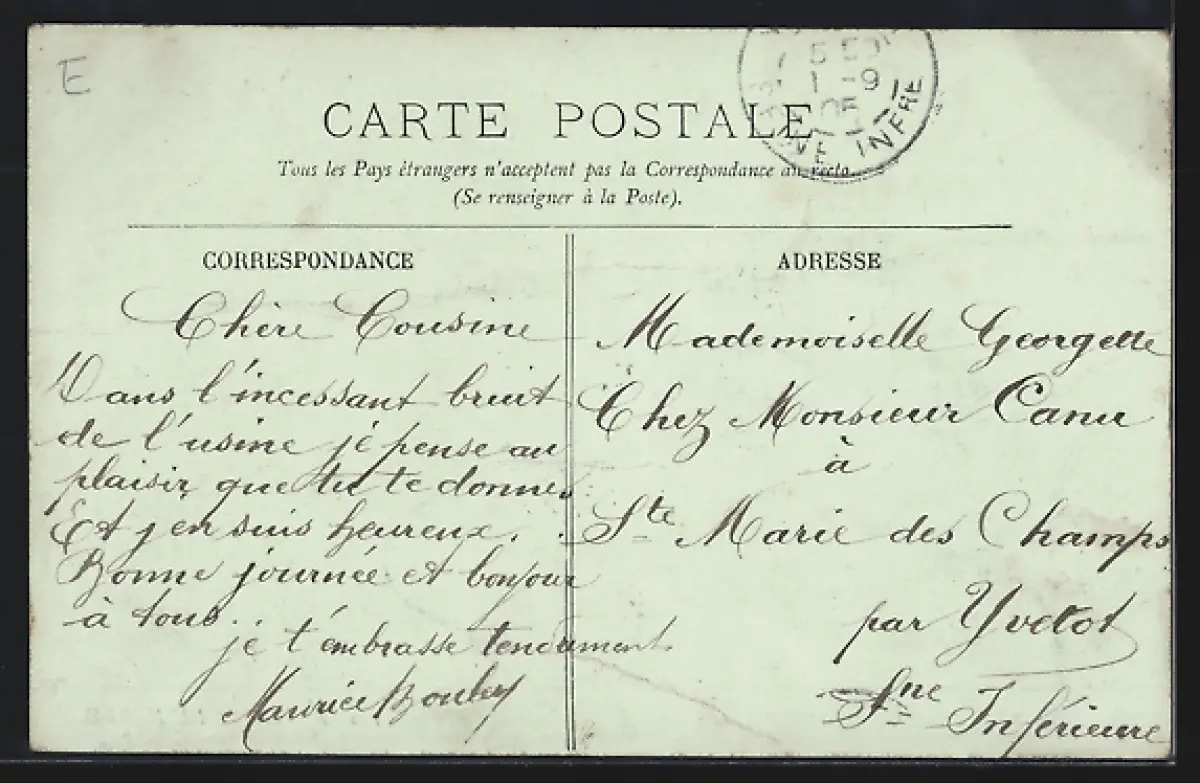 E
5 50
1 -9
05
INFRE
CARTE POSTALE
Tous les Pays étrangers n'acceptent pas la Correspondance au recto.
(Se renseigner à la Poste).
CORRESPONDANCE
Chère Cousine
Dans l'incessant bruit
de l'usine je pense au
plaisir que tu te donnes
Et j'en suis heureux.
Bonne journée et bonjour
à tous.
je t'embrasse tendument
Maurice
ADRESSE
Mademoiselle Georgette
Chez Monsieur Canu
à
Ste Marie des Champs
par Yvetot
Sne Inférieure